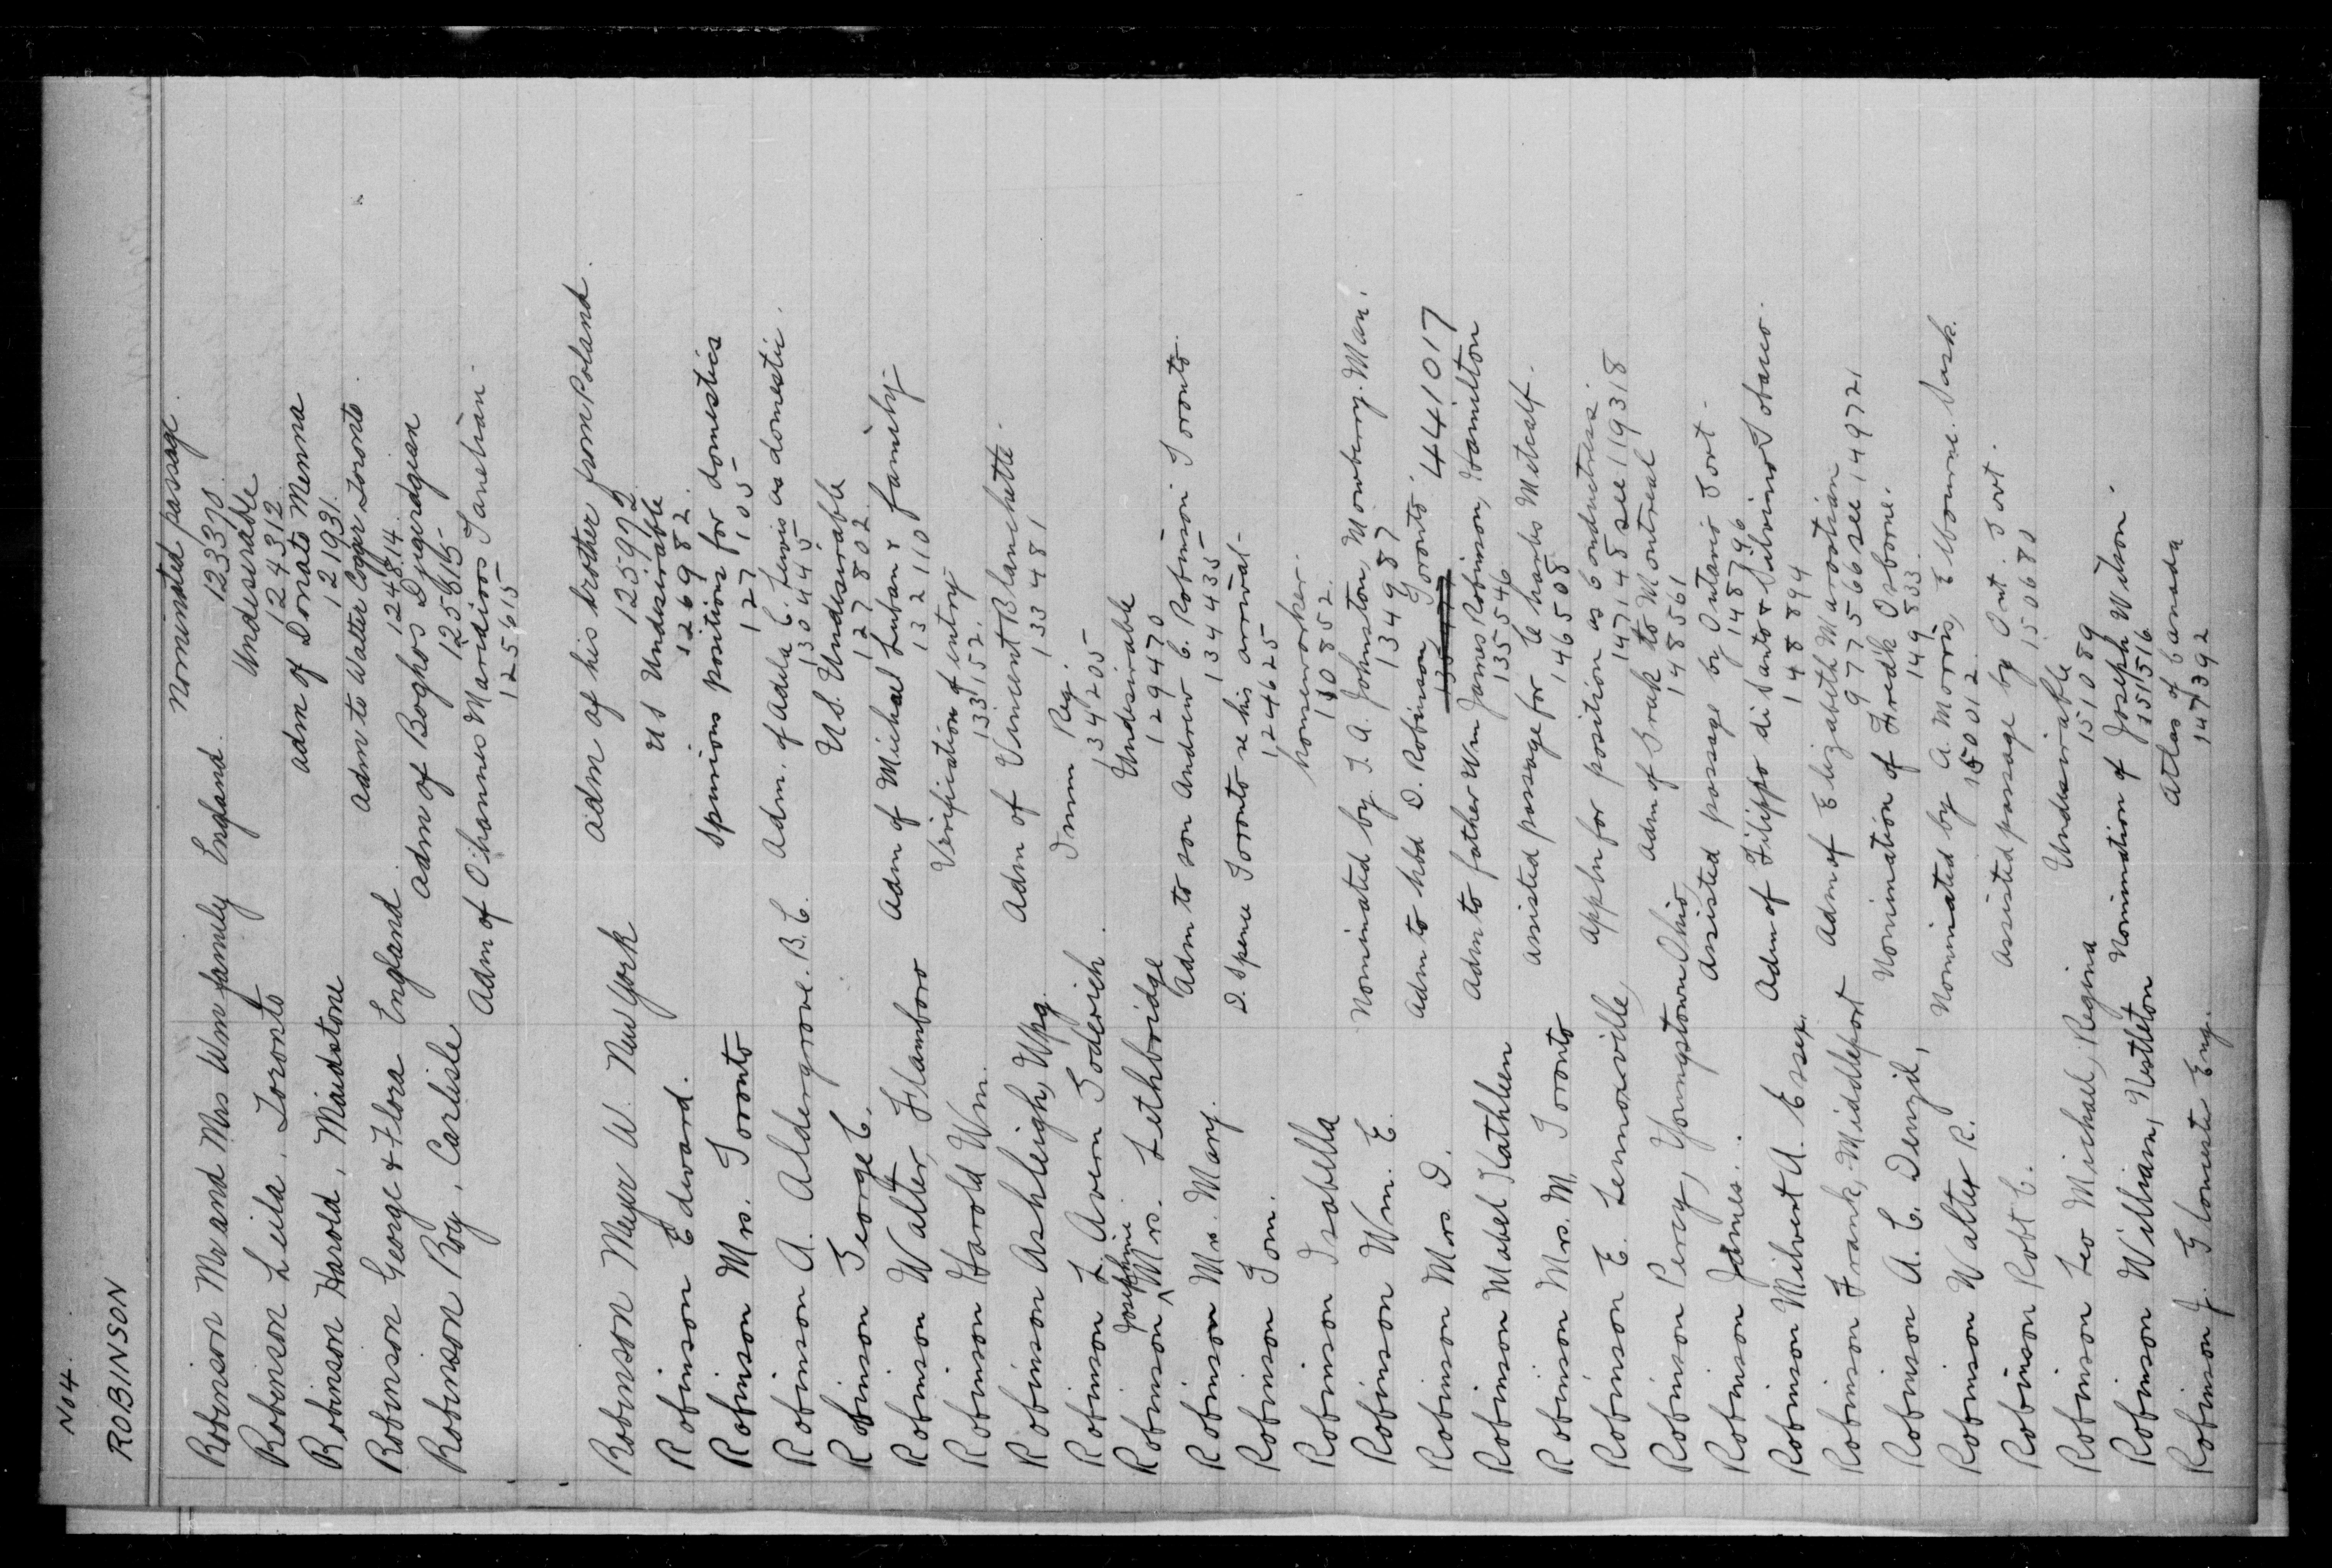 No 4.
ROBINSON
Robinson Mr and Mrs Wm family England. Nominated passage.
123370.
Robinson Leila, Toronto Undesirable
124312
Robinson Harold, Maidstone adm of Donato Menna
121931.
Robinson George & Flora England adm to Walter Toronto.
124814.
Robinson Roy, Carlisle adm of Boghos Djigerdgian
125615
Adm of Ohannes Maridioos Tanelian.
125615
Robinson Meyer W. New York adm of his brother from Poland.
125972
Robinson Edward. US Undesirable
126982.
Robinson Mrs. Toronto Spurious positions for domestics
127105
Robinson A. Aldergrove. B.C. Adm. of Adela C. Lewis as domestic.
130445
Robinson George C. U.S. Undesirable
127802
Robinson Walter, Flamboro adm of Michael Luban & family
132110
Robinson Harold Wm. Verification of entry
133152.
Robinson Ashleigh, Wpg. Adm of Vincent Blanchette.
133481
Robinson L. Avern Goderich. Imm Reg.
134205
Robinson Josephine Mrs. Lethbridge Undesirable
129470
Robinson Mrs. Mary. Adm to son Andrew C. Robinson Toronto.
134435
Robinson Tom. D. Spence Toronto re his arrival.
124625
Robinson Isabella houseworker.
130852
Robinson Wm. E. Nominated by J. A. Johnston, Mowbery. Man.
134987
Robinson Mrs D. Adm to hbd D. Robinson, Toronto. 441017
Robinson Mabel Kathleen Adm to father Wm James Robinson, Hamilton
135546
Robinson Mrs. M. Toronto assisted passage for Charles Metcalf.
146508
Robinson E. Lennoxville, appln for position as conductress.
147148 see 119318
Robinson Percy, Youngstown Ohio, Adm of to Montreal
148561
Robinson James. assisted passage by Ontario Govt.
148796
Robinson Milvert A. Essex. Adm of Filippo di Santo & Silvino Tobacco.
148894
Robinson Frank, Middleport Adm of Elizabeth Marootian
977566 see 149721
Robinson A. C. Denzil, Nomination of Fredk Osborne.
149833
Robinson Walter R. Nominated by A. Morris, Elbourne. Sask.
150012
Robinson Robt C. assisted passage by Ont. Govt.
150680
Robinson Leo Michael, Regina Undesirable
151089
Robinson William, Nestleton Nomination of Joseph Wilson.
151516
Robinson J. Gloucester Eng. Atlas of Canada
147392